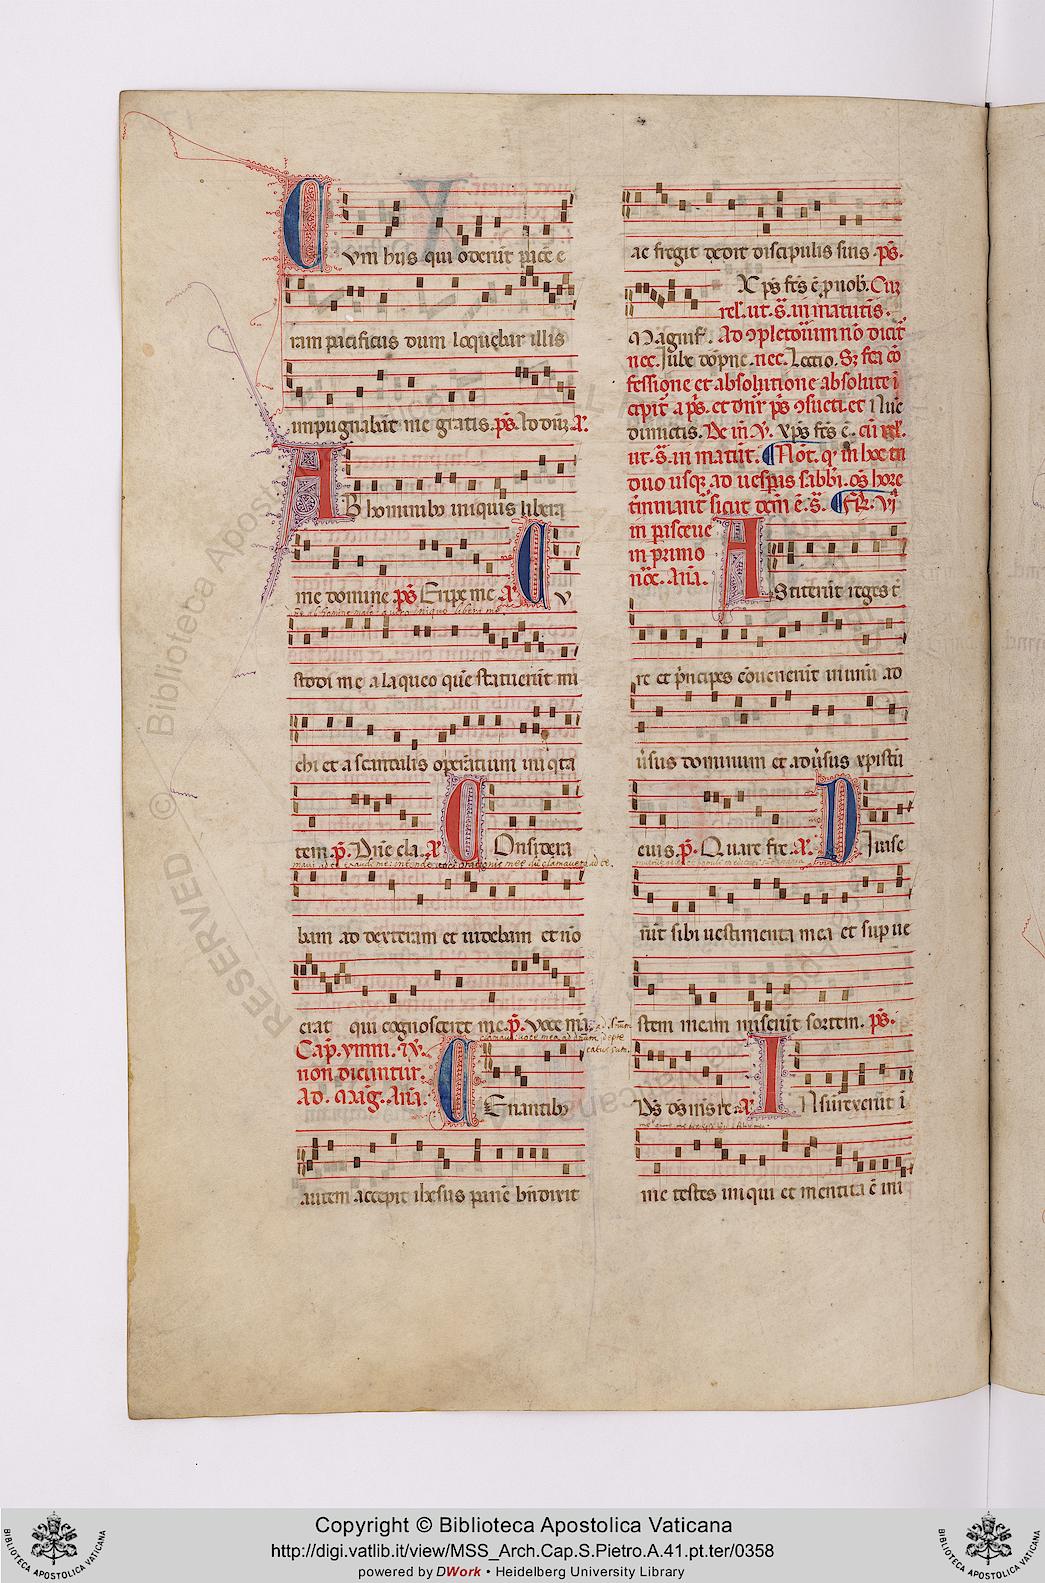 Cum hijs qui oderūt pacē e
ram pacificus dum loquebar illis
impugnabāt me gratis. ps. Ad dn̄z. a.
Ab hominib iniquis libera
me domine ps Eripe me. a. Cu
stodi me a laqueo quē statuerūt mi
chi et a scandalis operātium iniq̄ta
tem. p. Dn̄e cla. a. Considera
bam ad dexteram et uidebam et nō
erat qui cognosceret me. p. Uoce mā.
non dicuntur.
Ad. Mag. Aña. Cenantib
autem accepit ihesus panē bn̄dixit
ac fregit dedit discipulis suis. ps.
Xps fc̄s ē p nob. Cuz
rel. ut. s. in matutīs.
Magnif. Ad ↄpletorium nō dicit̄
nec. Jube dōpne. nec. Lectio. Sz fc̄a cō
fessione et absolutione absolute ī
cipit a ps. et dn̄r ps ↄsueti. et Nūc
dimictis. De in. v. xps fc̄s ē. cū rel.
ut. s. in matut. Not. q in hoc tri
duo usqz ad uespas sabbi. os hore
tīminant sicut dc̄m ē. s. Fr. vj
in parasceue
in primo
noc. Aña. Astiterūt reges t
re et pⁱncipes cōuenerūt in unū ad
ūsus dominum et adūsus xpistū
eius. p. Quare fre. a. Diuise
rūt sibi uestimenta mea et sup ue
stem meam miserūt sortem. ps.
Ds ds ms re. a. Insurrexerūt ī
me testes iniqui et mentita ē ini
RESERVED © Biblioteca Apostolica Vaticana
Copyright © Biblioteca Apostolica Vaticana
http://digi.vatlib.it/view/MSS_Arch.Cap.S.Pietro.A.41.pt.ter/0358
powered by DWork • Heidelberg University Library
BIBLIOTECA APOSTOLICA VATICANA
BIBLIOTECA APOSTOLICA VATICANA